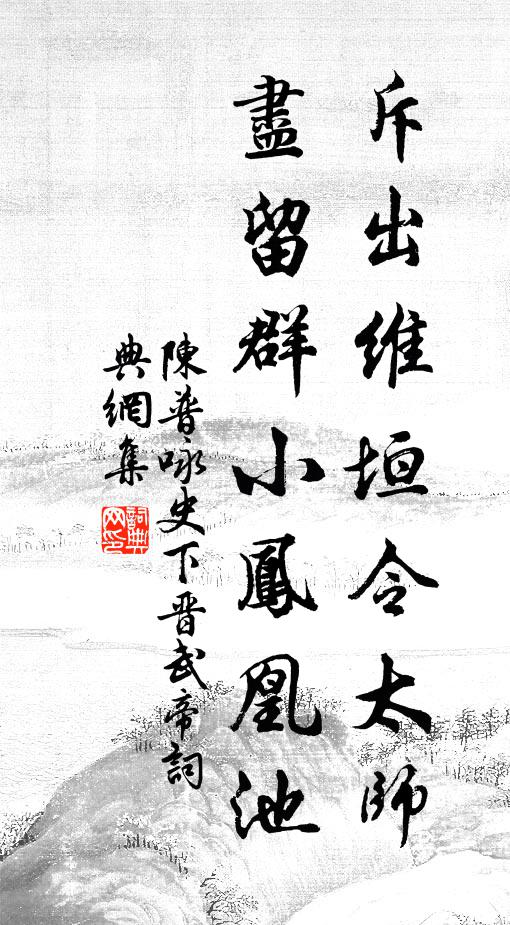 斥出維垣令太師
盡留群小鳳凰池
陳普咏史下晋武帝詞
典網集
詞典網印